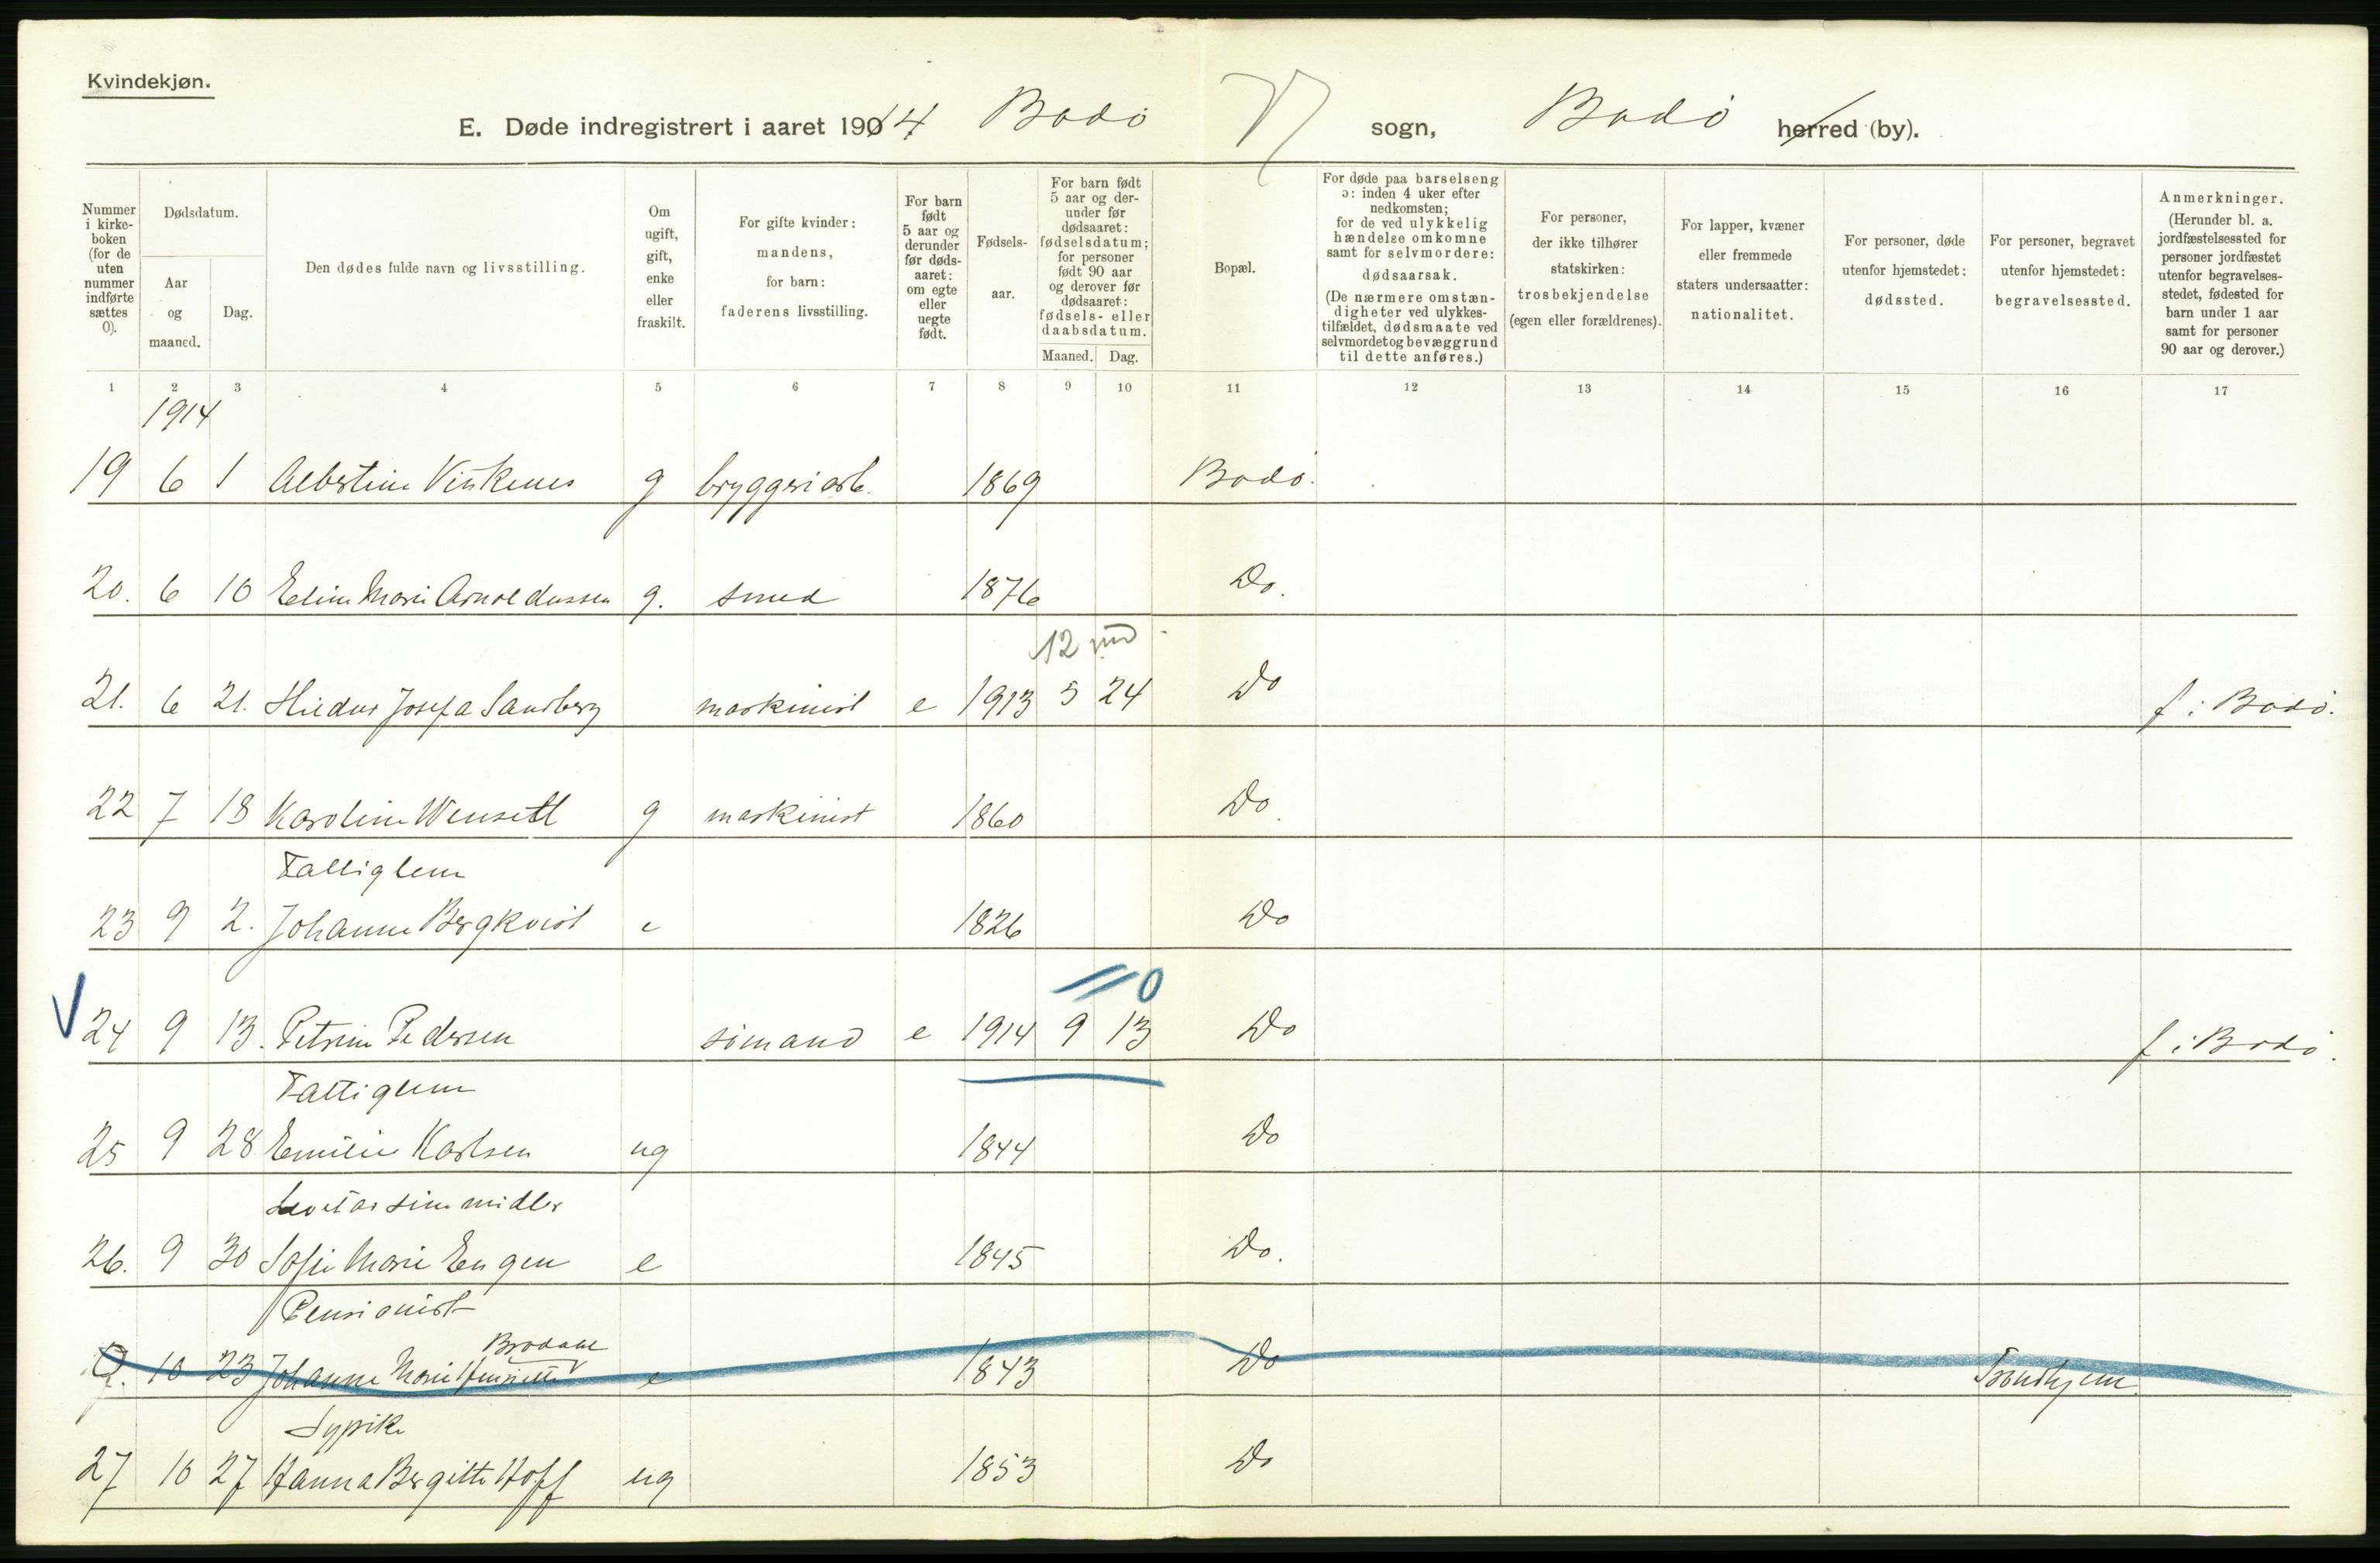 Kvindekjøn.
E. Døde indregistrert i aaret 1914 Bodø sogn, Bodø herred (by).
Nummer i kirkeboken (for de uten nummer indførte sættes 0).
Dødsdatum.
Aar og maaned.
Dag.
Den dødes fulde navn og livsstilling.
Om ugift, gift, enke eller fraskilt.
For gifte kvinder: mandens, for barn: faderens livsstilling.
For barn født 5 aar og derunder før dødsaaret: om egte eller uegte født.
Fødselsaar.
For barn født 5 aar og derunder før dødsaaret: fødselsdatum; for personer født 90 aar og derover før dødsaaret: fødsels- eller daabsdatum.
Maaned. Dag.
Bopæl.
For døde paa barselseng ɔ: inden 4 uker efter nedkomsten; for de ved ulykkelig hændelse omkomne samt for selvmordere: dødsaarsak. (De nærmere omstændigheter ved ulykkestilfældet, dødsmaate ved selvmordet og bevæggrund til dette anføres.)
For personer, der ikke tilhører statskirken: trosbekjendelse (egen eller forældrenes).
For lapper, kvæner eller fremmede staters undersaatter: nationalitet.
For personer, døde utenfor hjemstedet: dødssted.
For personer, begravet utenfor hjemstedet: begravelsessted.
Anmerkninger. (Herunder bl. a. jordfæstelsessted for personer jordfæstet utenfor begravelsesstedet, fødested for barn under 1 aar samt for personer 90 aar og derover.)
1 2 3 4 5 6 7 8 9 10 11 12 13 14 15 16 17
1914
19 6 1 Albertine Vikenes g bryggeriarb. 1869 Bodø.
20. 6 10 Eline Marie Arnoldussen g. smed 1876 Do.
12 md
21. 6 21. Josefa Sandberg maskinist e 1913 5 24 Do f i Bodø.
22 7 18 Karoline Wensell g maskinist 1860 Do.
Fattiglem
23 9 2. Johanne Bergkvist e 1826 Do
0
24 9 13. Petrine Pedersen sømand e 1914 9 13 Do f i Bodø.
Fattiglem
25 9 28 Emilie Karlsen ug 1844 Do
Levet av sine midler
26. 9 30 Sofie Marie Engen e 1845 Do.
Pensionist
Brodahl
0. 10 23 Johanne Marie Henriette e 1843 Do Trondhjem.
Sypike
27 10 27 Hanna Bergitte Hoff ug 1853 Do